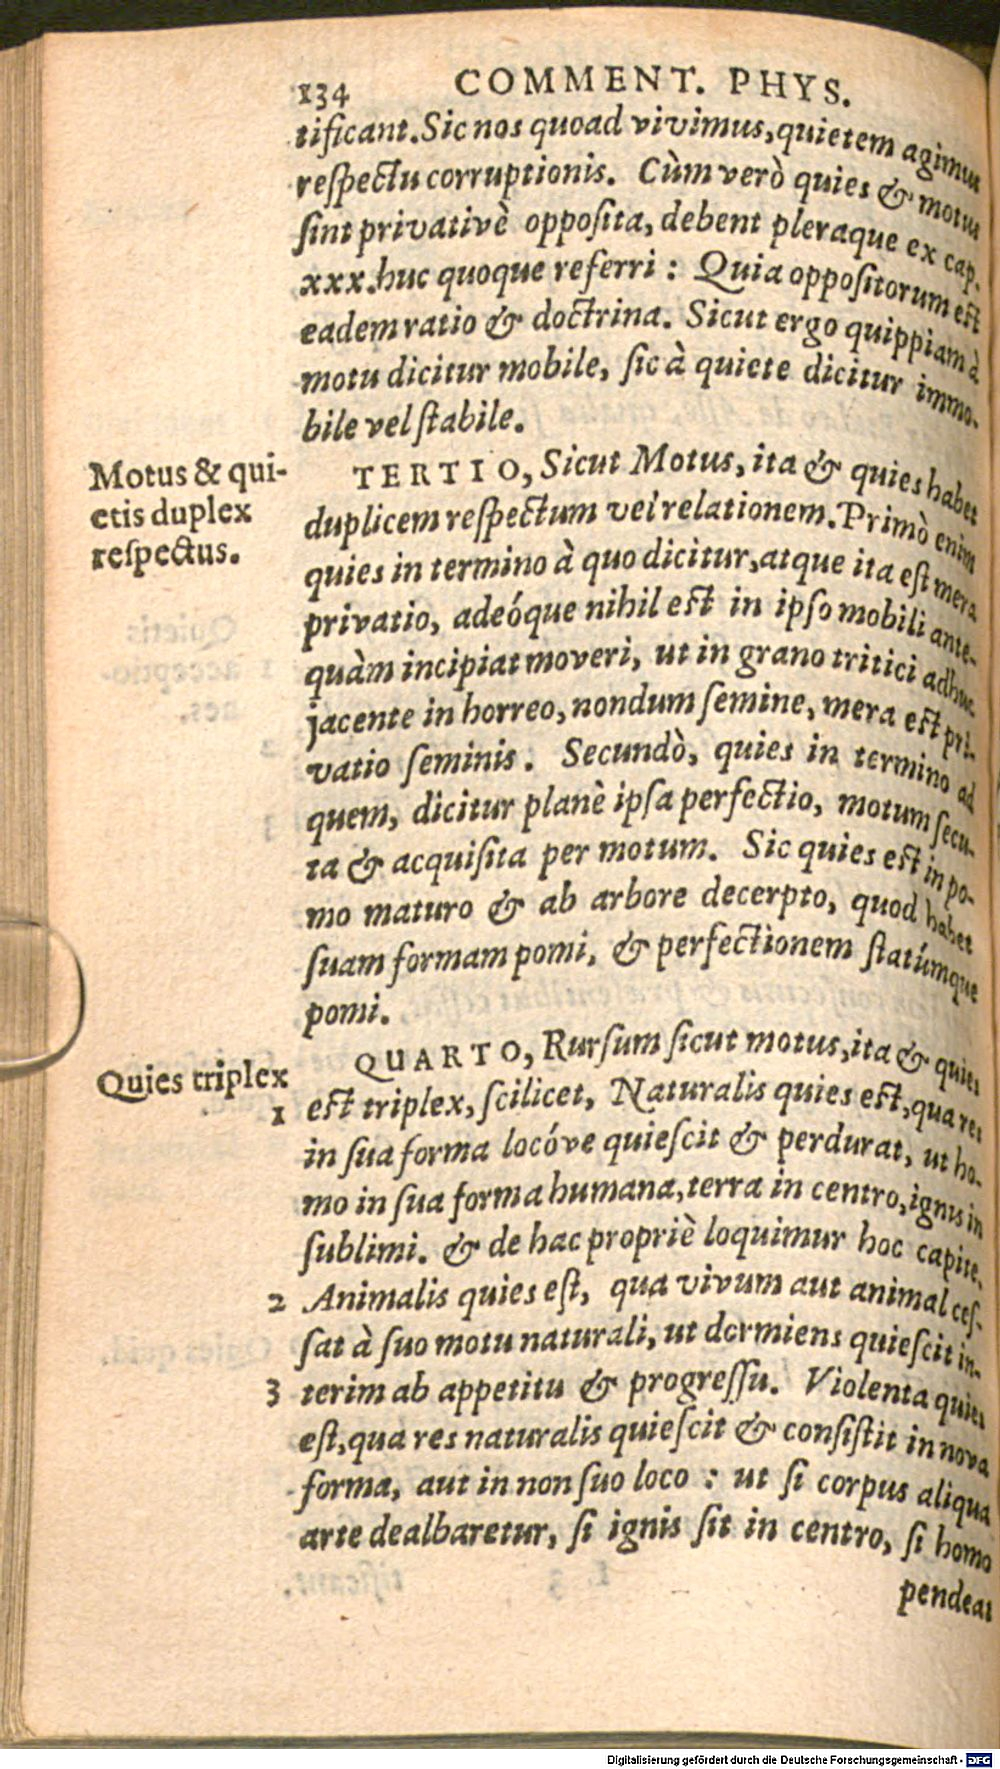 134 COMMENT. PHYS.
tificant. Sic nos quoad vivimus, quietem agimus
reſpectu corruptionis. Cùm verò quies & motus
ſint privativè oppoſita, debent pleraque ex cap.
xxx. huc quoque referri: Quia oppoſitorum eſt
eadem ratio & doctrina. Sicut ergo quippiam à
motu dicitur mobile, ſic à quiete dicitur immo-
bile vel ſtabile.
Motus & qui-
etis duplex
reſpectus.
TERTIO, Sicut Motus, ita & quies habet
duplicem reſpectum vel relationem. Primò enim
quies in termino à quo dicitur, atque ita eſt mera
privatio, adeóque nihil eſt in ipſo mobili ante-
quàm incipiat moveri, ut in grano tritici adhuc
jacente in horreo, nondum ſemine, mera eſt pri-
vatio ſeminis. Secundò, quies in termino ad
quem, dicitur planè ipſa perfectio, motum ſecu-
ta & acquiſita per motum. Sic quies eſt in po-
mo maturo & ab arbore decerpto, quod habet
ſuam formam pomi, & perfectionem ſtatúmque
pomi.
Quies triplex
QUARTO, Rurſum ſicut motus, ita & quies
1 eſt triplex, ſcilicet, Naturalis quies eſt, qua res
in ſua forma locóve quieſcit & perdurat, ut ho-
mo in ſua forma humana, terra in centro, ignis in
ſublimi. & de hac propriè loquimur hoc capite.
2 Animalis quies eſt, qua vivum aut animal ceſ-
ſat à ſuo motu naturali, ut dormiens quieſcit in-
3 terim ab appetitu & progreſſu. Violenta quies
eſt, qua res naturalis quieſcit & conſiſtit in nova
forma, aut in non ſuo loco: ut ſi corpus aliqua
arte dealbaretur, ſi ignis ſit in centro, ſi homo
pendeat
Digitalisierung gefördert durch die Deutsche Forschungsgemeinschaft - DFG